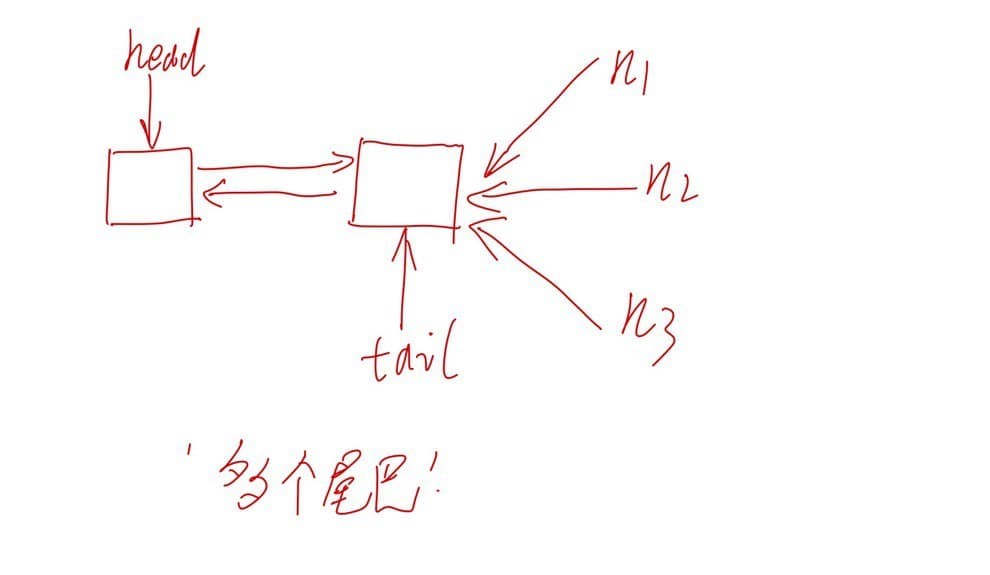 head
n1
n2
n3
tail
'多个尾巴'